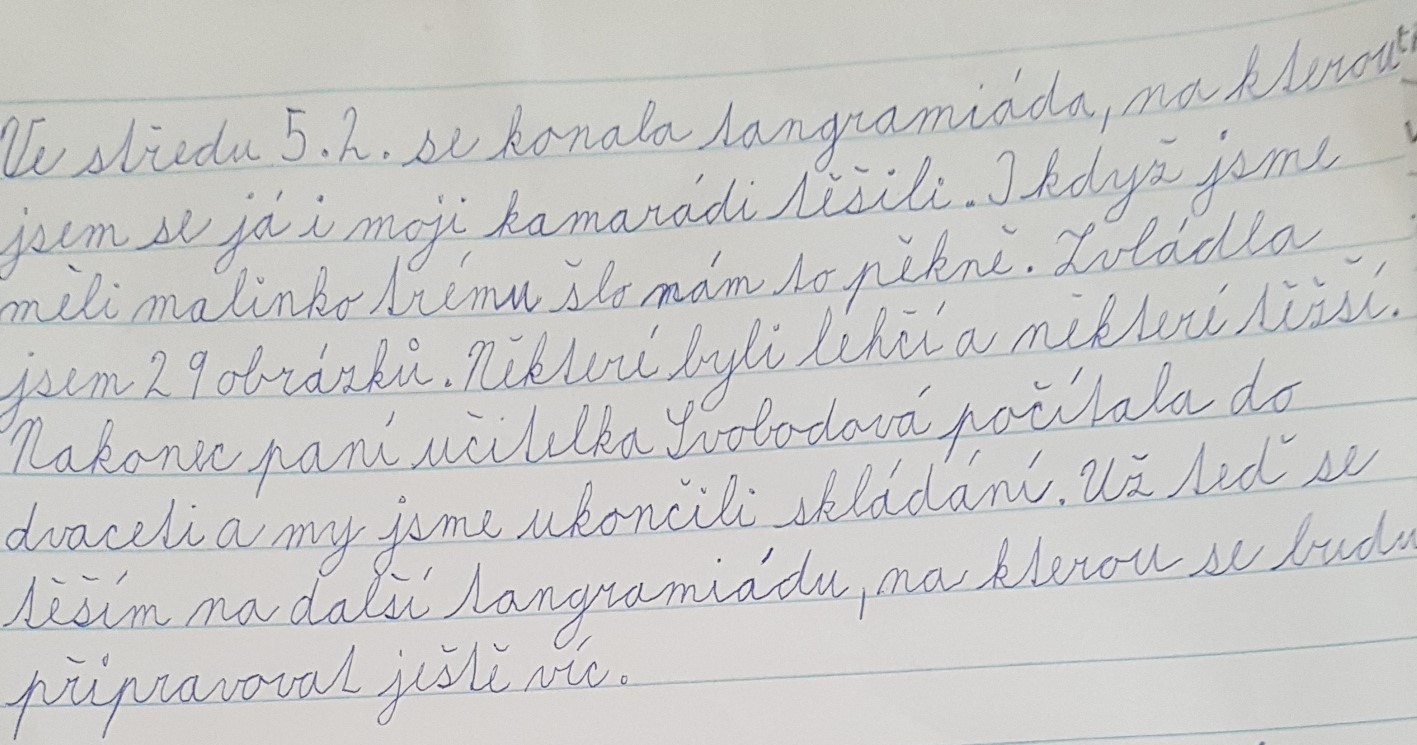 Ve středu 5.2. se konala tangramiáda, na kterou
jsem se já i moji kamarádi těšili. I když jsme
měli malinko trému šlo nám to pěkně. Zvládla
jsem 29 obrázků. Někteří byli lehčí a někteří těžší.
Nakonec paní učitelka Svobodová počítala do
dvaceti a my jsme ukončili skládání. Už teď se
těším na další tangramiádu, na kterou se budu
připravovat ještě víc.